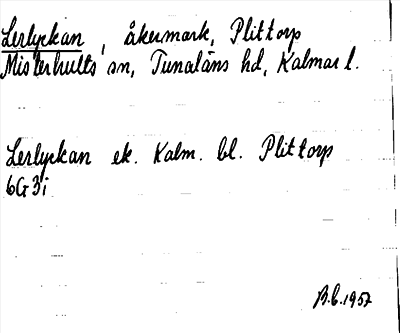 Lerlyckan, åkermark, Plittorp
Misterhults sn, Tunaläns hd, Kalmar l.
Lerlyckan ek. Kalm. bl. Plittorp
6G3i
B.C. 1957